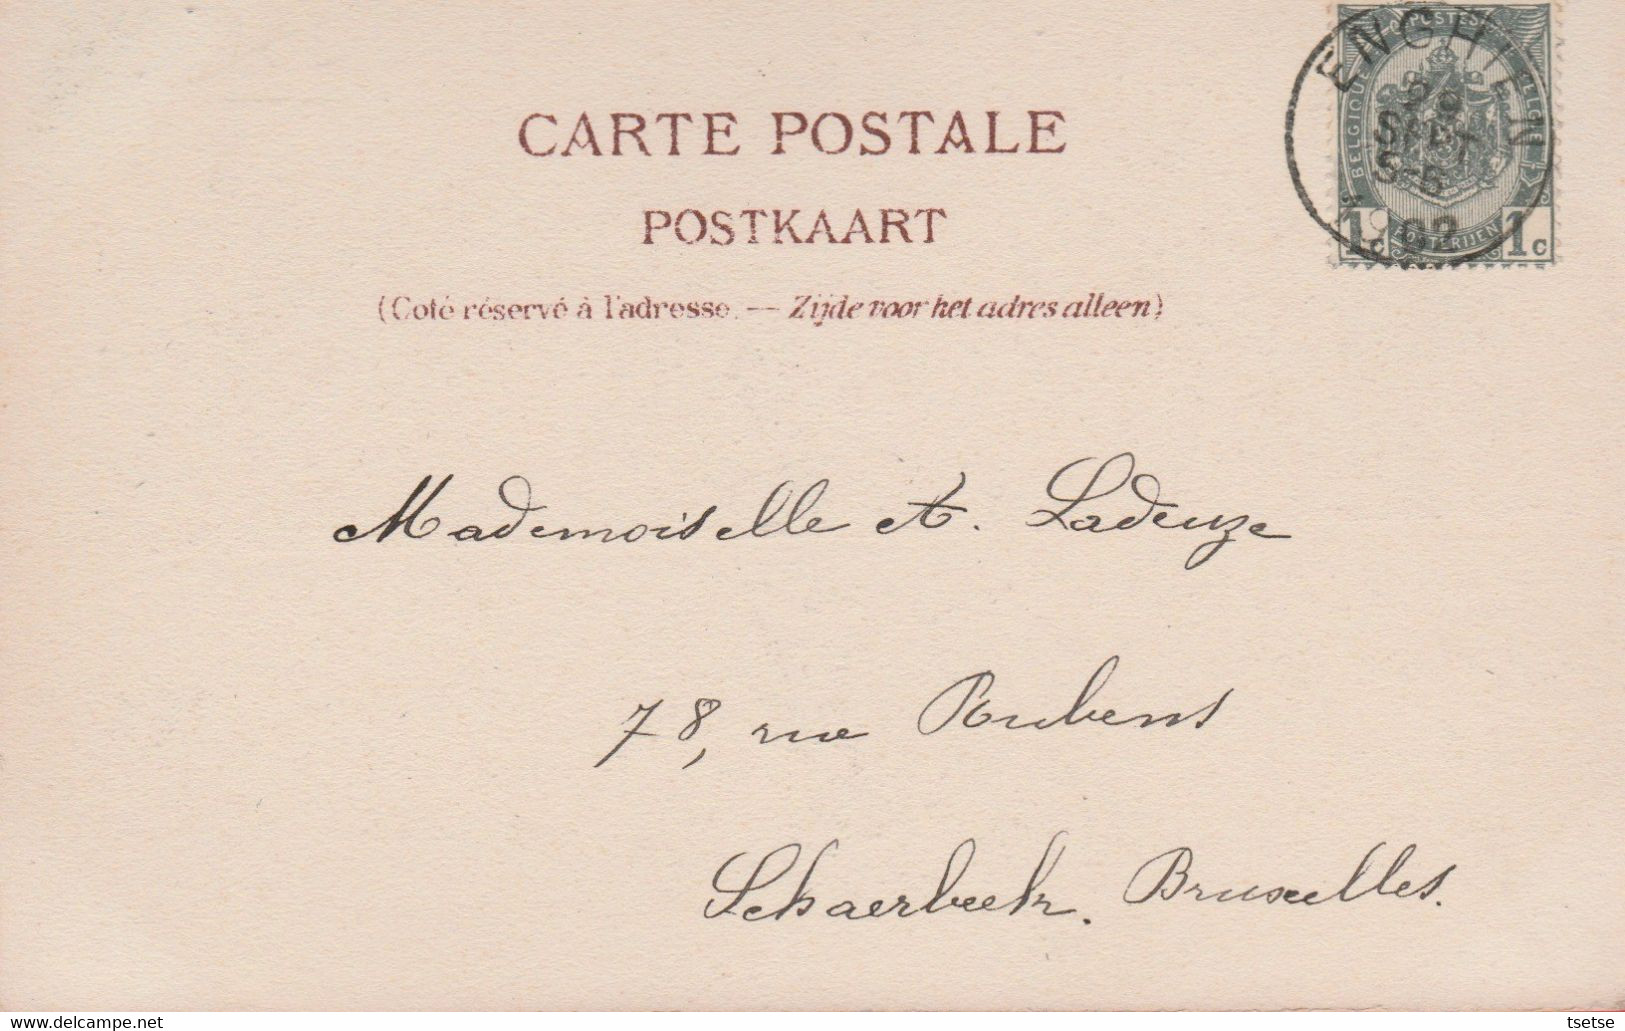 ENGHIEN
SEPT
02
POSTES
BELGIQUE
1c POSTERIJEN 1c
CARTE POSTALE
POSTKAART
(Coté réservé à l'adresse. — Zijde voor het adres alleen)
Mademoiselle A. Ladeuze
78, rue Roubens
Schaerbeek. Bruxelles.
tsetse